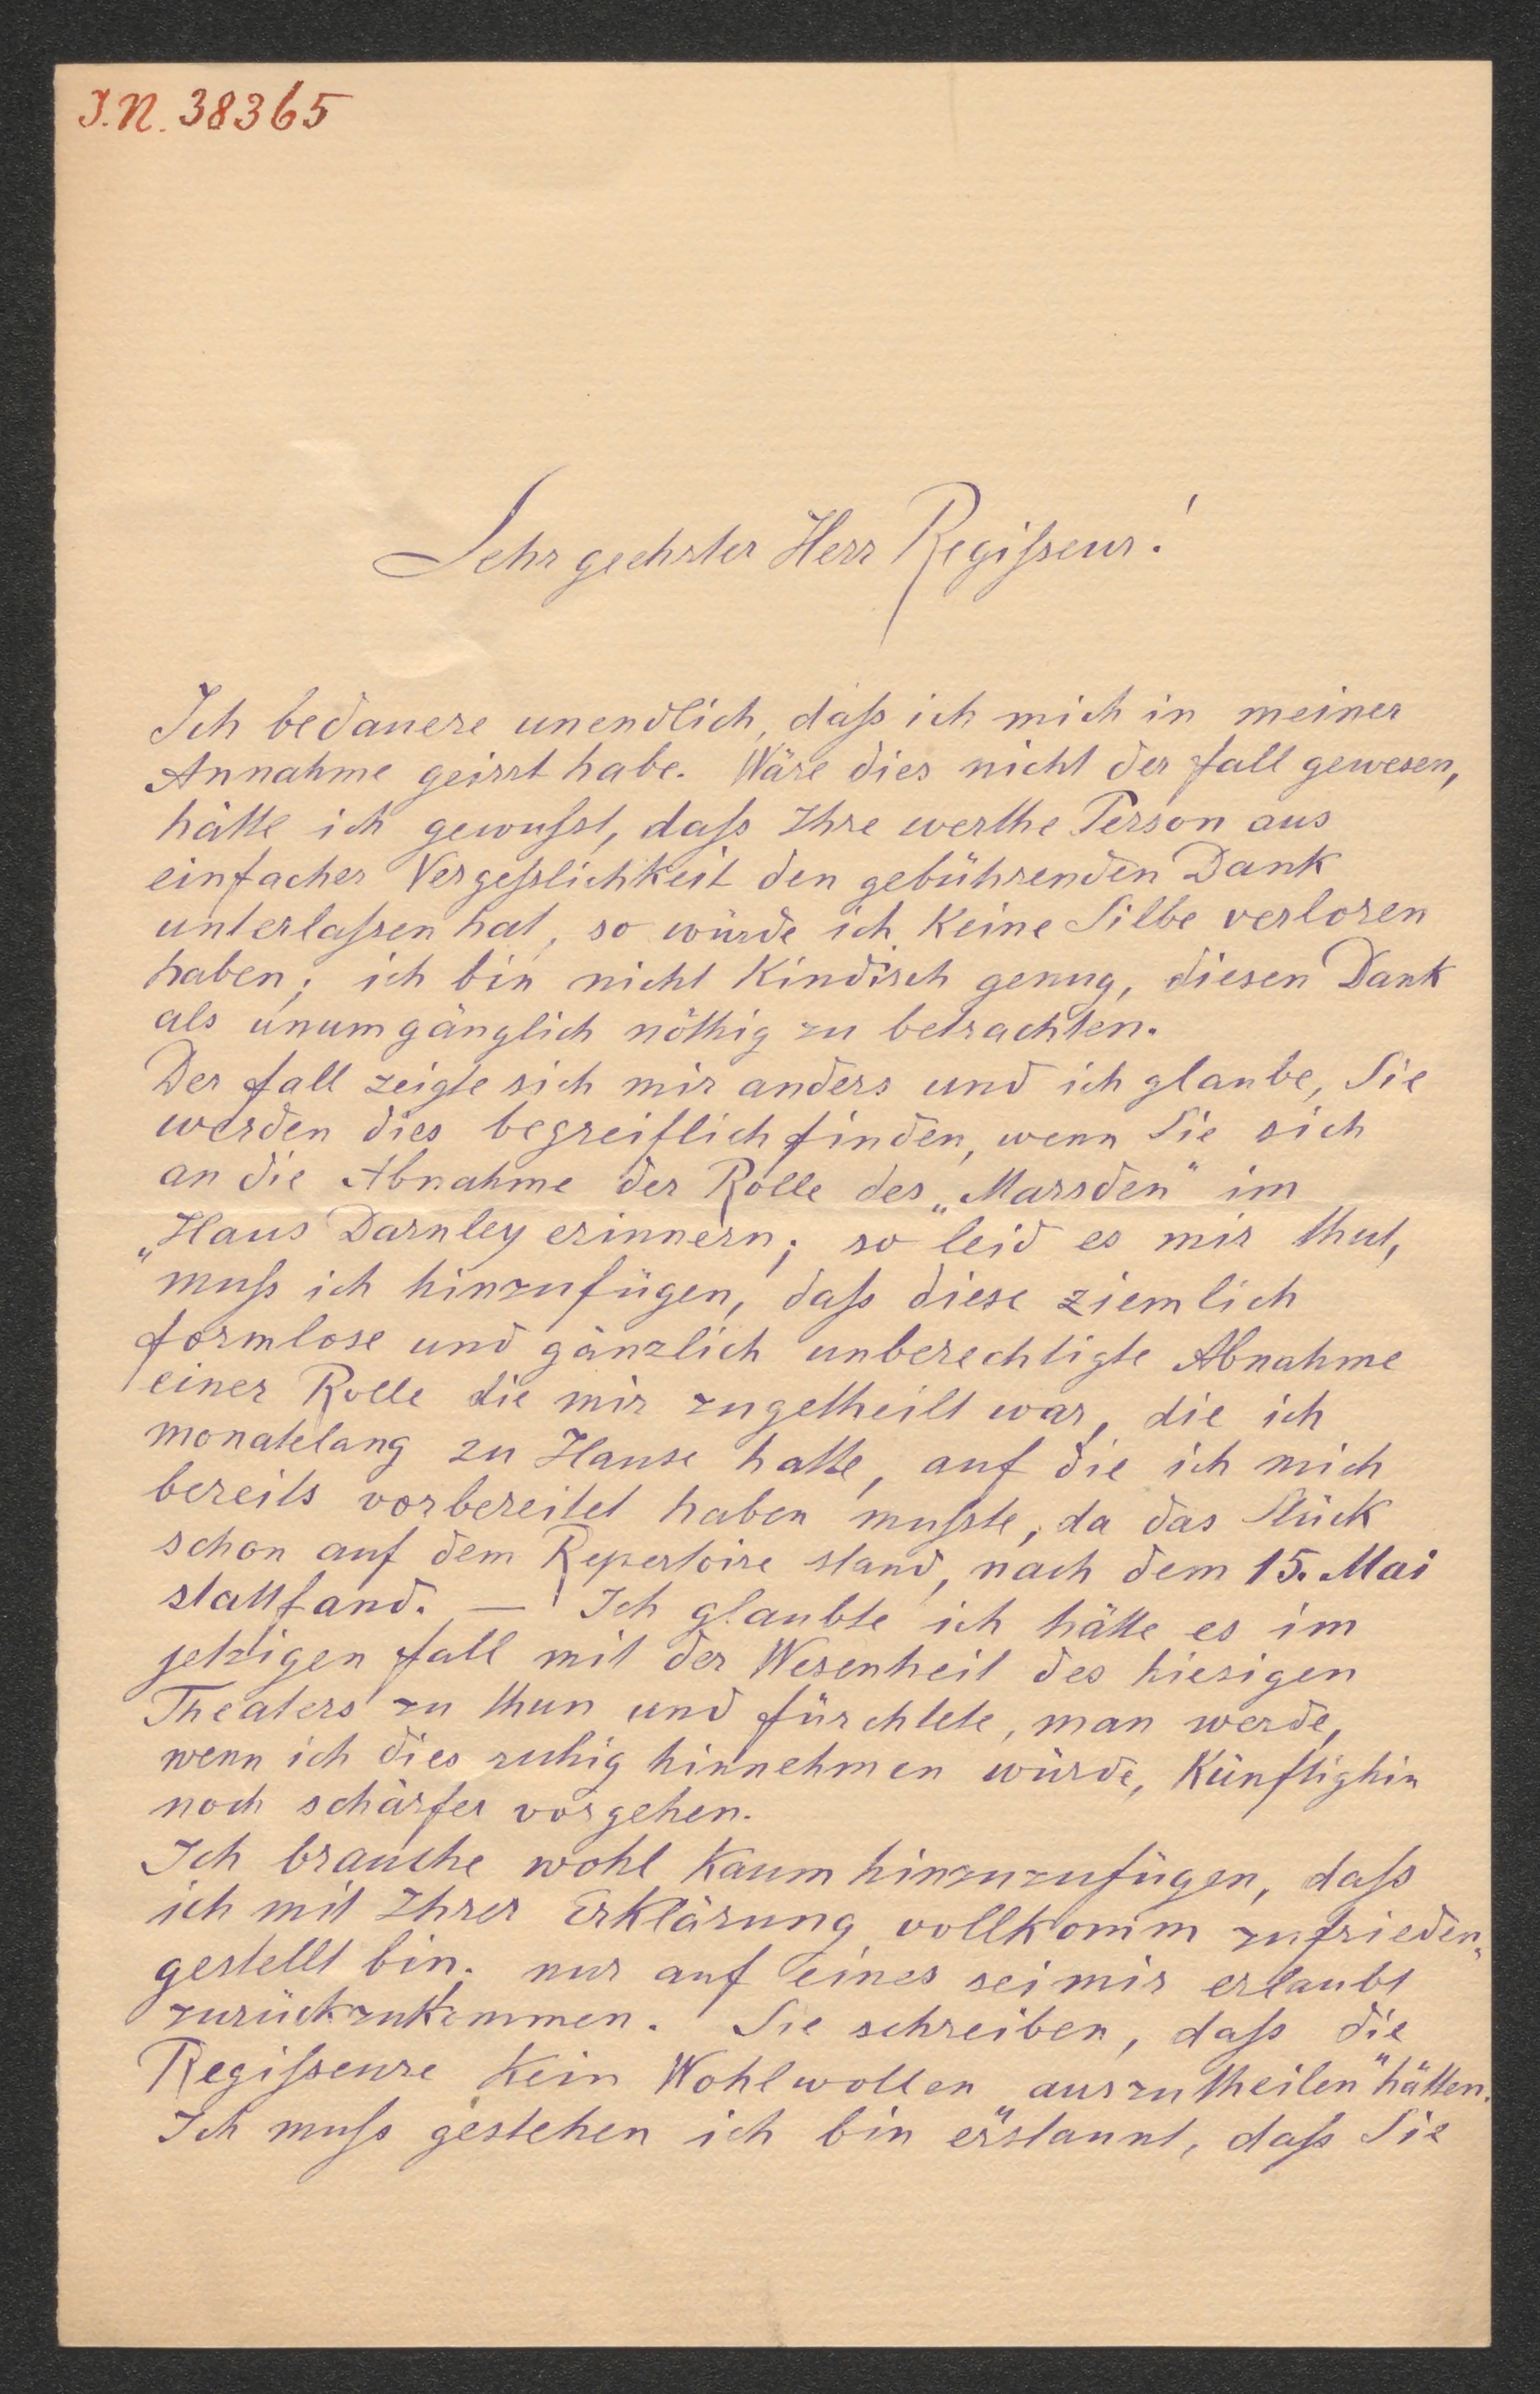 I.N. 38365
Sehr geehrter Herr Regißeur!
Ich bedauere unendlich, daß ich mich in meiner
Annahme geirrt habe. Wäre dies nicht der Fall gewesen,
hätte ich gewußt, daß Ihre werthe Person aus
einfacher Vergeßlichkeit den gebührenden Dank
unterlaßen hat, so würde ich keine Silbe verloren
haben; ich bin nicht kindisch genug, diesen Dank
als unumgänglich nöthig zu betrachten.
Der Fall zeigte sich mir anders und ich glaube, Sie
werden dies begreiflich finden, wenn Sie sich
an die Abnahme der Rolle des „Marsden" im
„Haus Darnley" erinnern; so leid es mir thut,
muß ich hinzufügen, daß diese ziemlich
formlose und gänzlich unberechtigte Abnahme
einer Rolle die mir zugetheilt war, die ich
monatelang zu Hause hatte, auf die ich mich
bereits vorbereitet haben mußte, da das Stück
schon auf dem Repertoire stand, nach dem 15. Mai
stattfand. — Ich glaubte ich hätte es im
jetzigen Fall mit der Wesenheit des hiesigen
Theaters zu thun und fürchtete, man werde,
wenn ich dies ruhig hinnehmen würde, künftighin
noch schärfer vorgehen.
Ich brauche wohl kaum hinzuzufügen, daß
ich mit Ihrer Erklärung vollkomm zufrieden„
gestellt bin; nur auf eines sei mir erlaubt
zurückzukommen. Sie schreiben, daß die
Regißeure kein Wohlwollen „auszutheilen" hätten.
Ich muß gestehen ich bin erstaunt, daß Sie